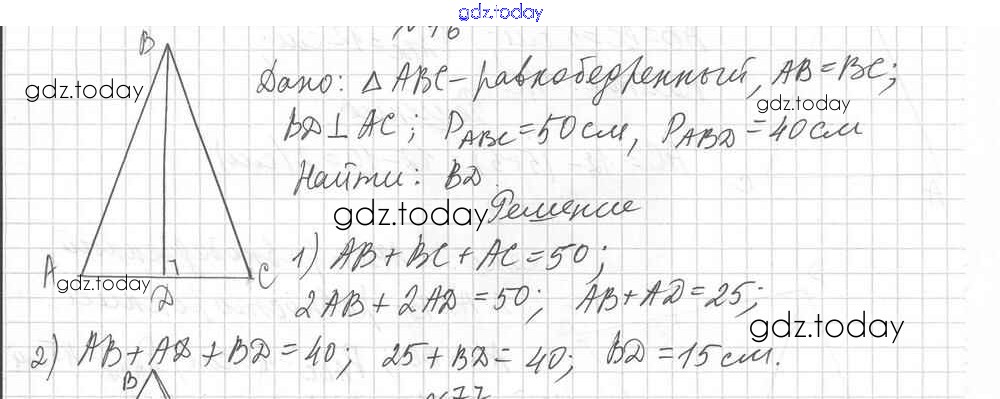 gdz.today
№76
B
Дано: △ABC – равнобедренный, AB = BC;
gdz.today
gdz.today
BD ⊥ AC; P_ABC = 50 см, P_ABD = 40 см
Найти: BD.
gdz.today Решение
1) AB + BC + AC = 50;
A C
gdz.today
D
2AB + 2AD = 50; AB + AD = 25;
gdz.today
2) AB + AD + BD = 40; 25 + BD = 40; BD = 15 см.
B
№77